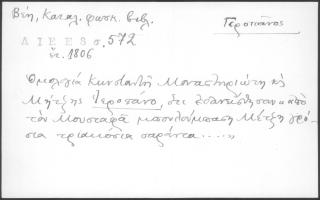 Βέη, Καταλ. φωτ. βιβλ.
Γεροπάνος
Α Ι Ε Ε Σ σ. 572
ἔτ. 1806
Ὁμολογία Κωνσταντῆ Μοναστηριώτη κὴ
Μήτζης Γεροπάνο, ὅτι ἐδανείσθησαν «ἀπὸ
τὸν Μουσταφᾶ μπουλούμπαση Μέτζη γρό-
σια τριακόσια σαράντα.....»